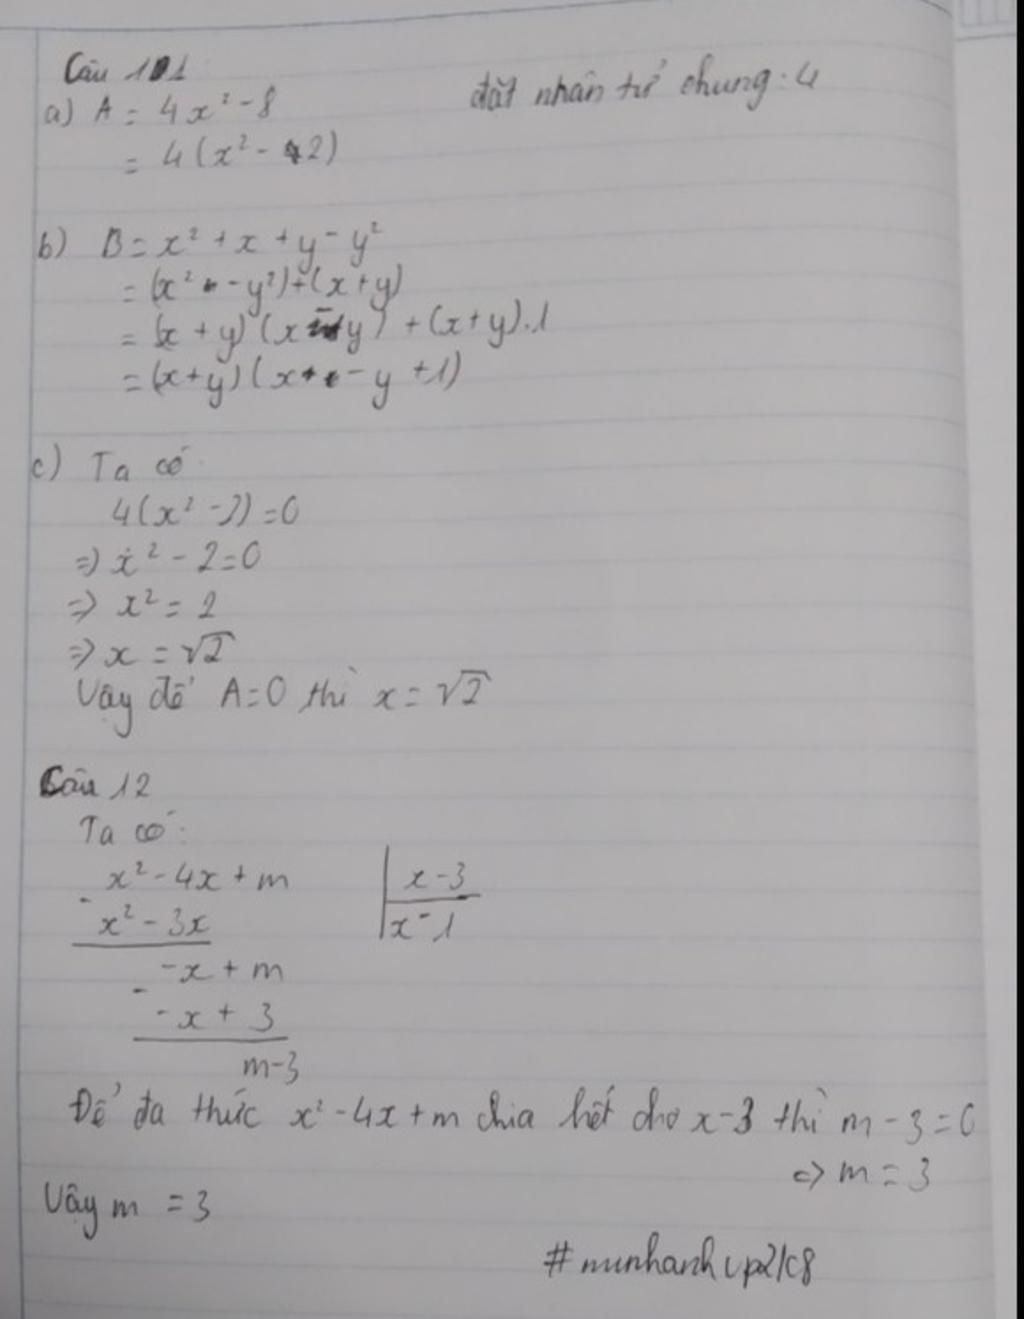 Câu 11
a) A = 4x² - 8
đặt nhân tử chung: 4
= 4(x² - 2)
b) B = x² + x + y - y²
= (x² - y²) + (x + y)
= (x + y) (x - y) + (x + y).1
= (x + y) (x - y + 1)
c) Ta có
4(x² - 2) = 0
=> x² - 2 = 0
=> x² = 2
=> x = √2
Vậy để A = 0 thì x = √2
Câu 12
Ta có:
x² - 4x + m | x - 3
- x² - 3x | x - 1
-x + m
- -x + 3
m - 3
Để đa thức x² - 4x + m chia hết cho x - 3 thì m - 3 = 0
<=> m = 3
Vậy m = 3